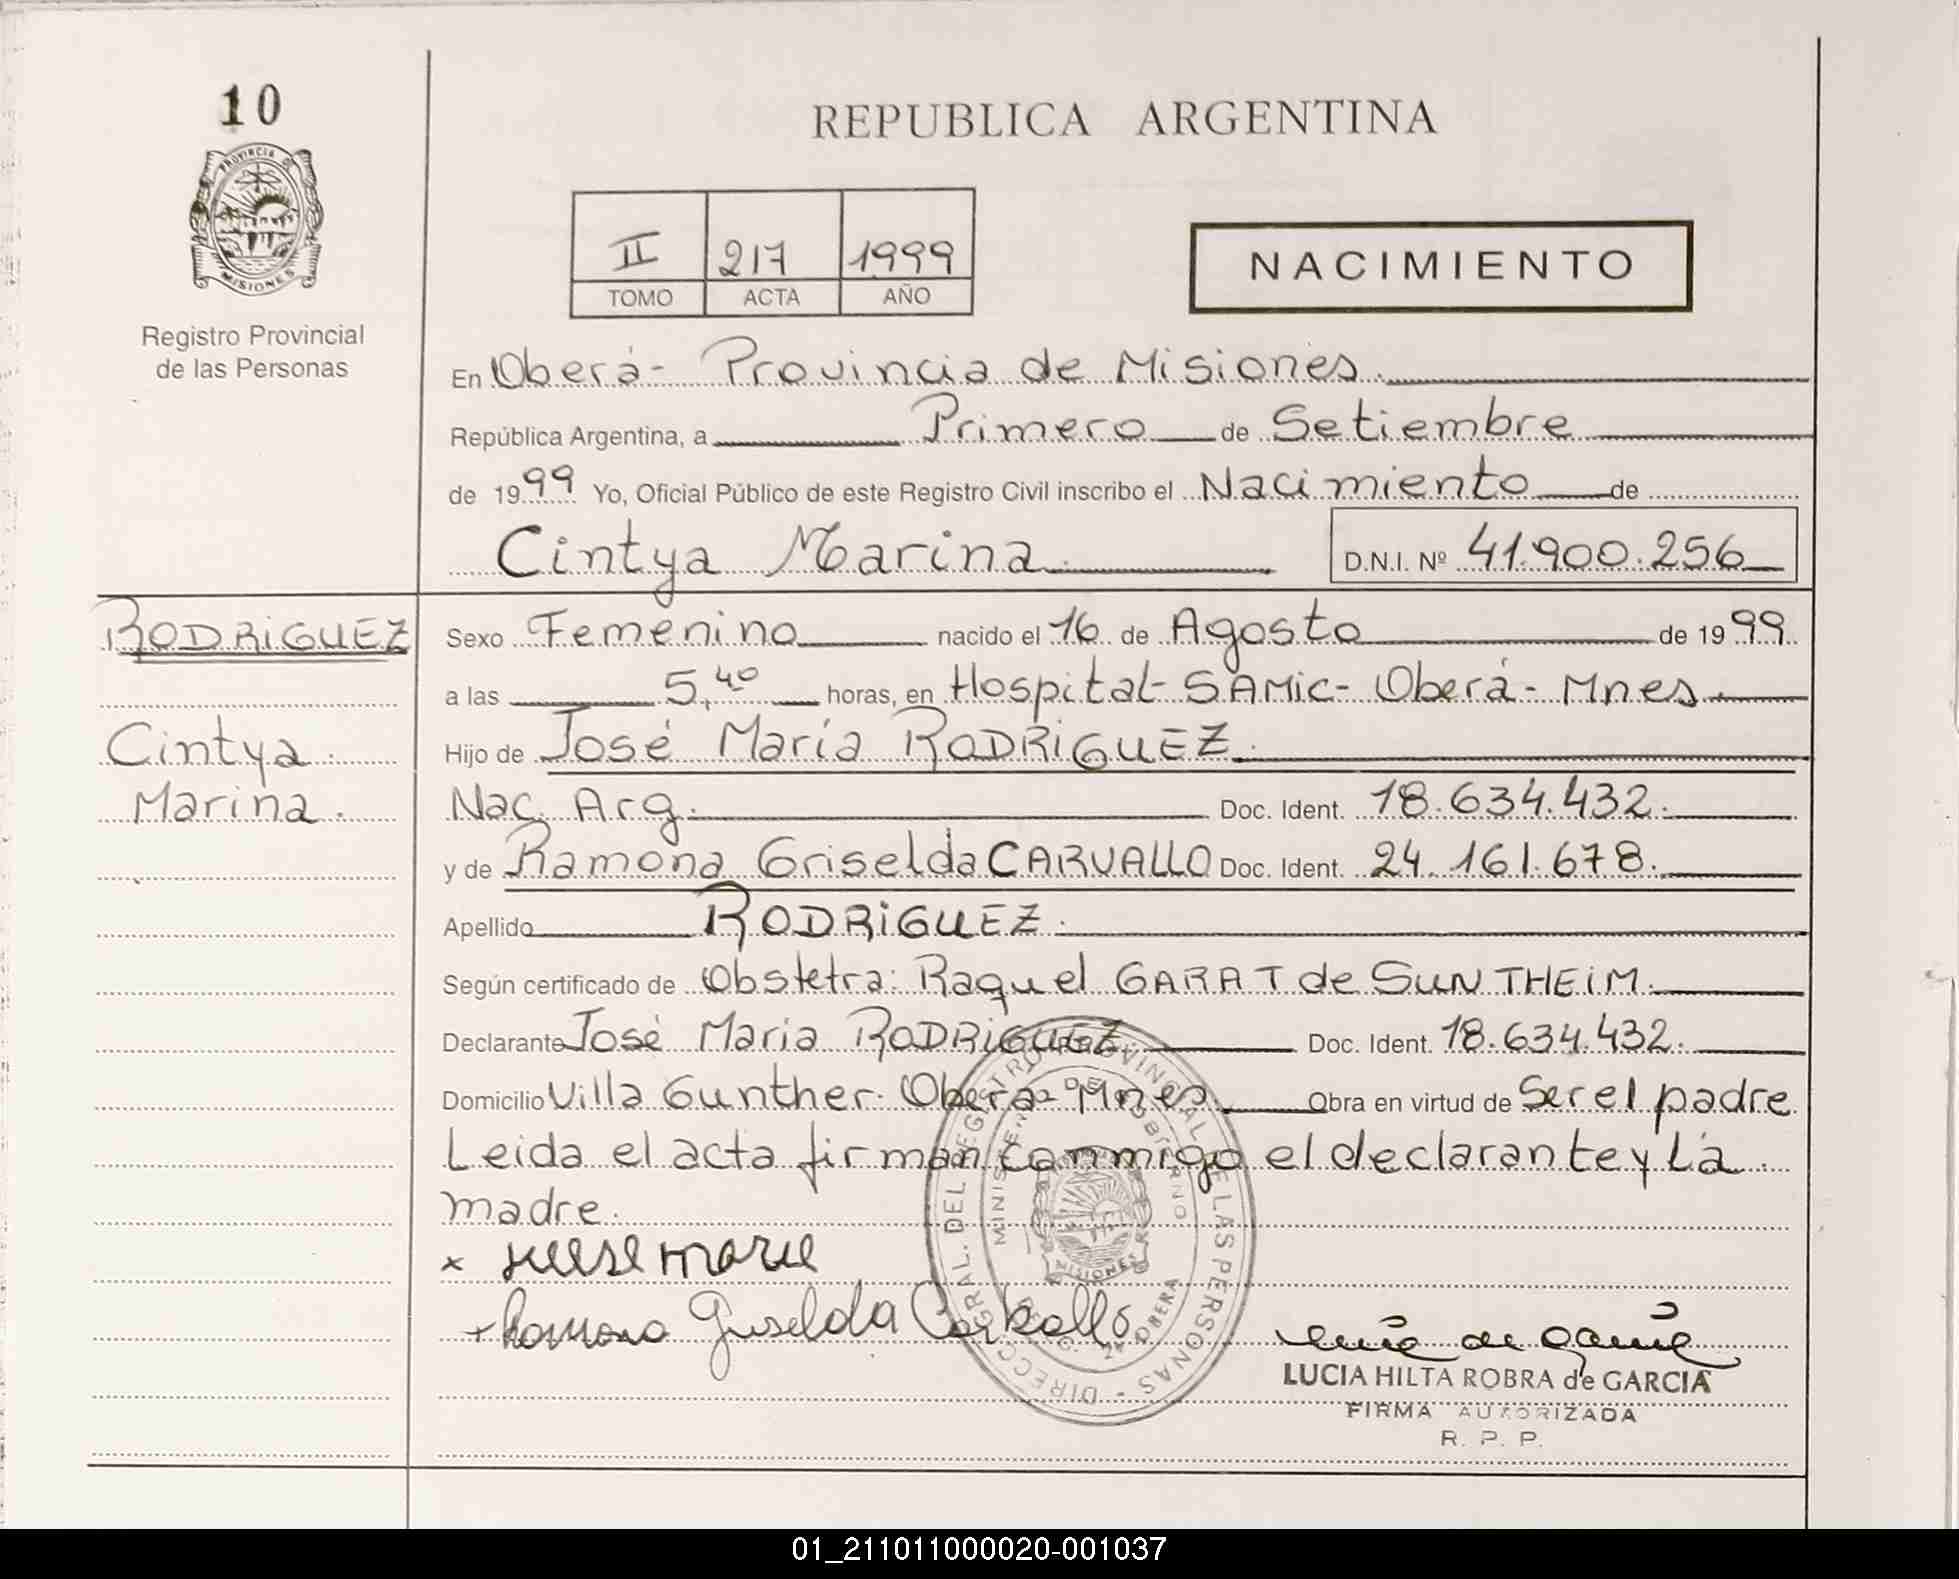 10
PROVINCIA D
MISIONES
Registro Provincial
de las Personas
REPUBLICA ARGENTINA
II 217 1999
TOMO ACTA AÑO
NACIMIENTO
En Oberá- Provincia de Misiones.
República Argentina, a Primero de Setiembre
de 1999 Yo, Oficial Público de este Registro Civil inscribo el Nacimiento de
Cintya Marina. D.N.I. Nº 41.900.256
RODRIGUEZ
Cintya
Marina.
Sexo Femenino nacido el 16 de Agosto de 1999
a las 5,40 horas, en Hospital SAMIC- Oberá- Mnes.
Hijo de José María RODRIGUEZ.
Nac. Arg. Doc. Ident. 18.634.432.
y de Ramona Griselda CARVALLO Doc. Ident. 24.161.678.
Apellido RODRIGUEZ.
Según certificado de Obstetra: Raquel GARAT de SUNTHEIM.
Declarante José Maria RODRIGUEZ. Doc. Ident. 18.634.432.
Domicilio Villa Gunther. Oberá- Mnes. Obra en virtud de Ser el padre
Leida el acta firman conmigo el declarante y La
madre.
x
+ Ramona Griselda Carballo
DIRECC. GRAL. DEL REGISTRO PROVINCIAL DE LAS PERSONAS -
DE GOBIERNO
MISIONES
OBERA
LUCIA HILTA ROBRA de GARCIA
FIRMA AUTORIZADA
R. P. P.
01_211011000020-001037